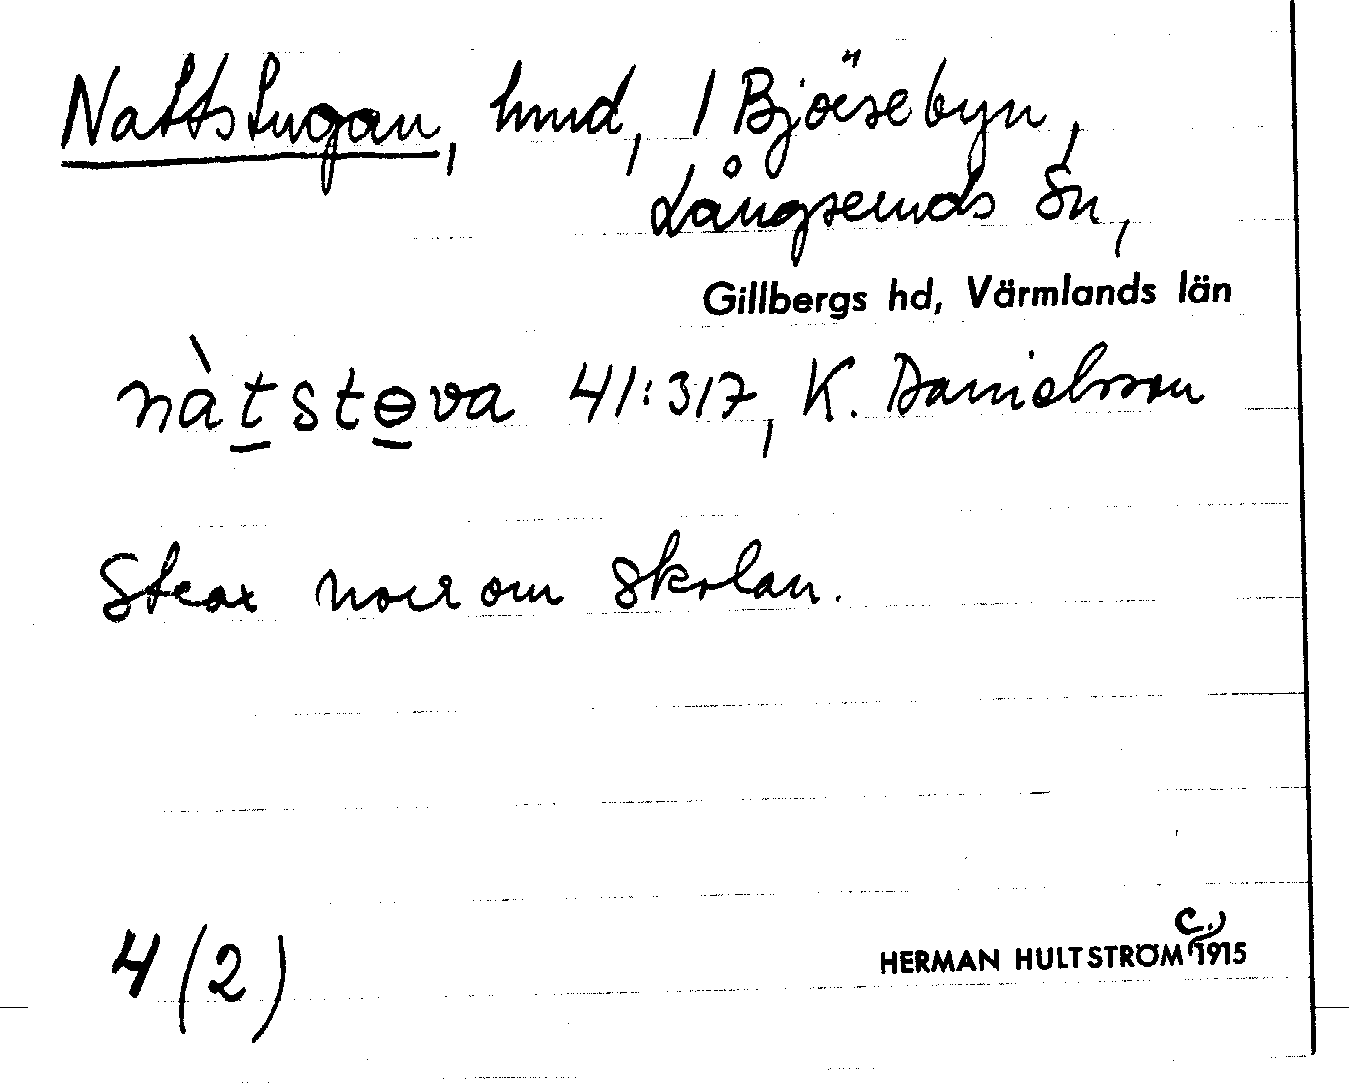 Nattstugan, hmd, 1 Bjöisebyn,
Långseruds Sn,
Gillbergs hd, Värmlands län
nàtstɵva 41:317, K. Danielsson
Strax norr om skolan.
C.)
4 (2) HERMAN HULTSTRÖM 1915